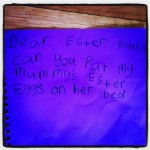 Dear Ester bunny
Can you Put my
Mummys Ester
Eggs on her bed